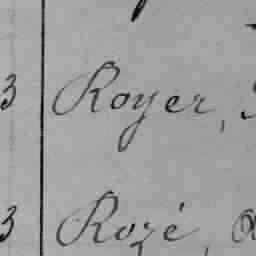 3 Royer,
3 Rozé,